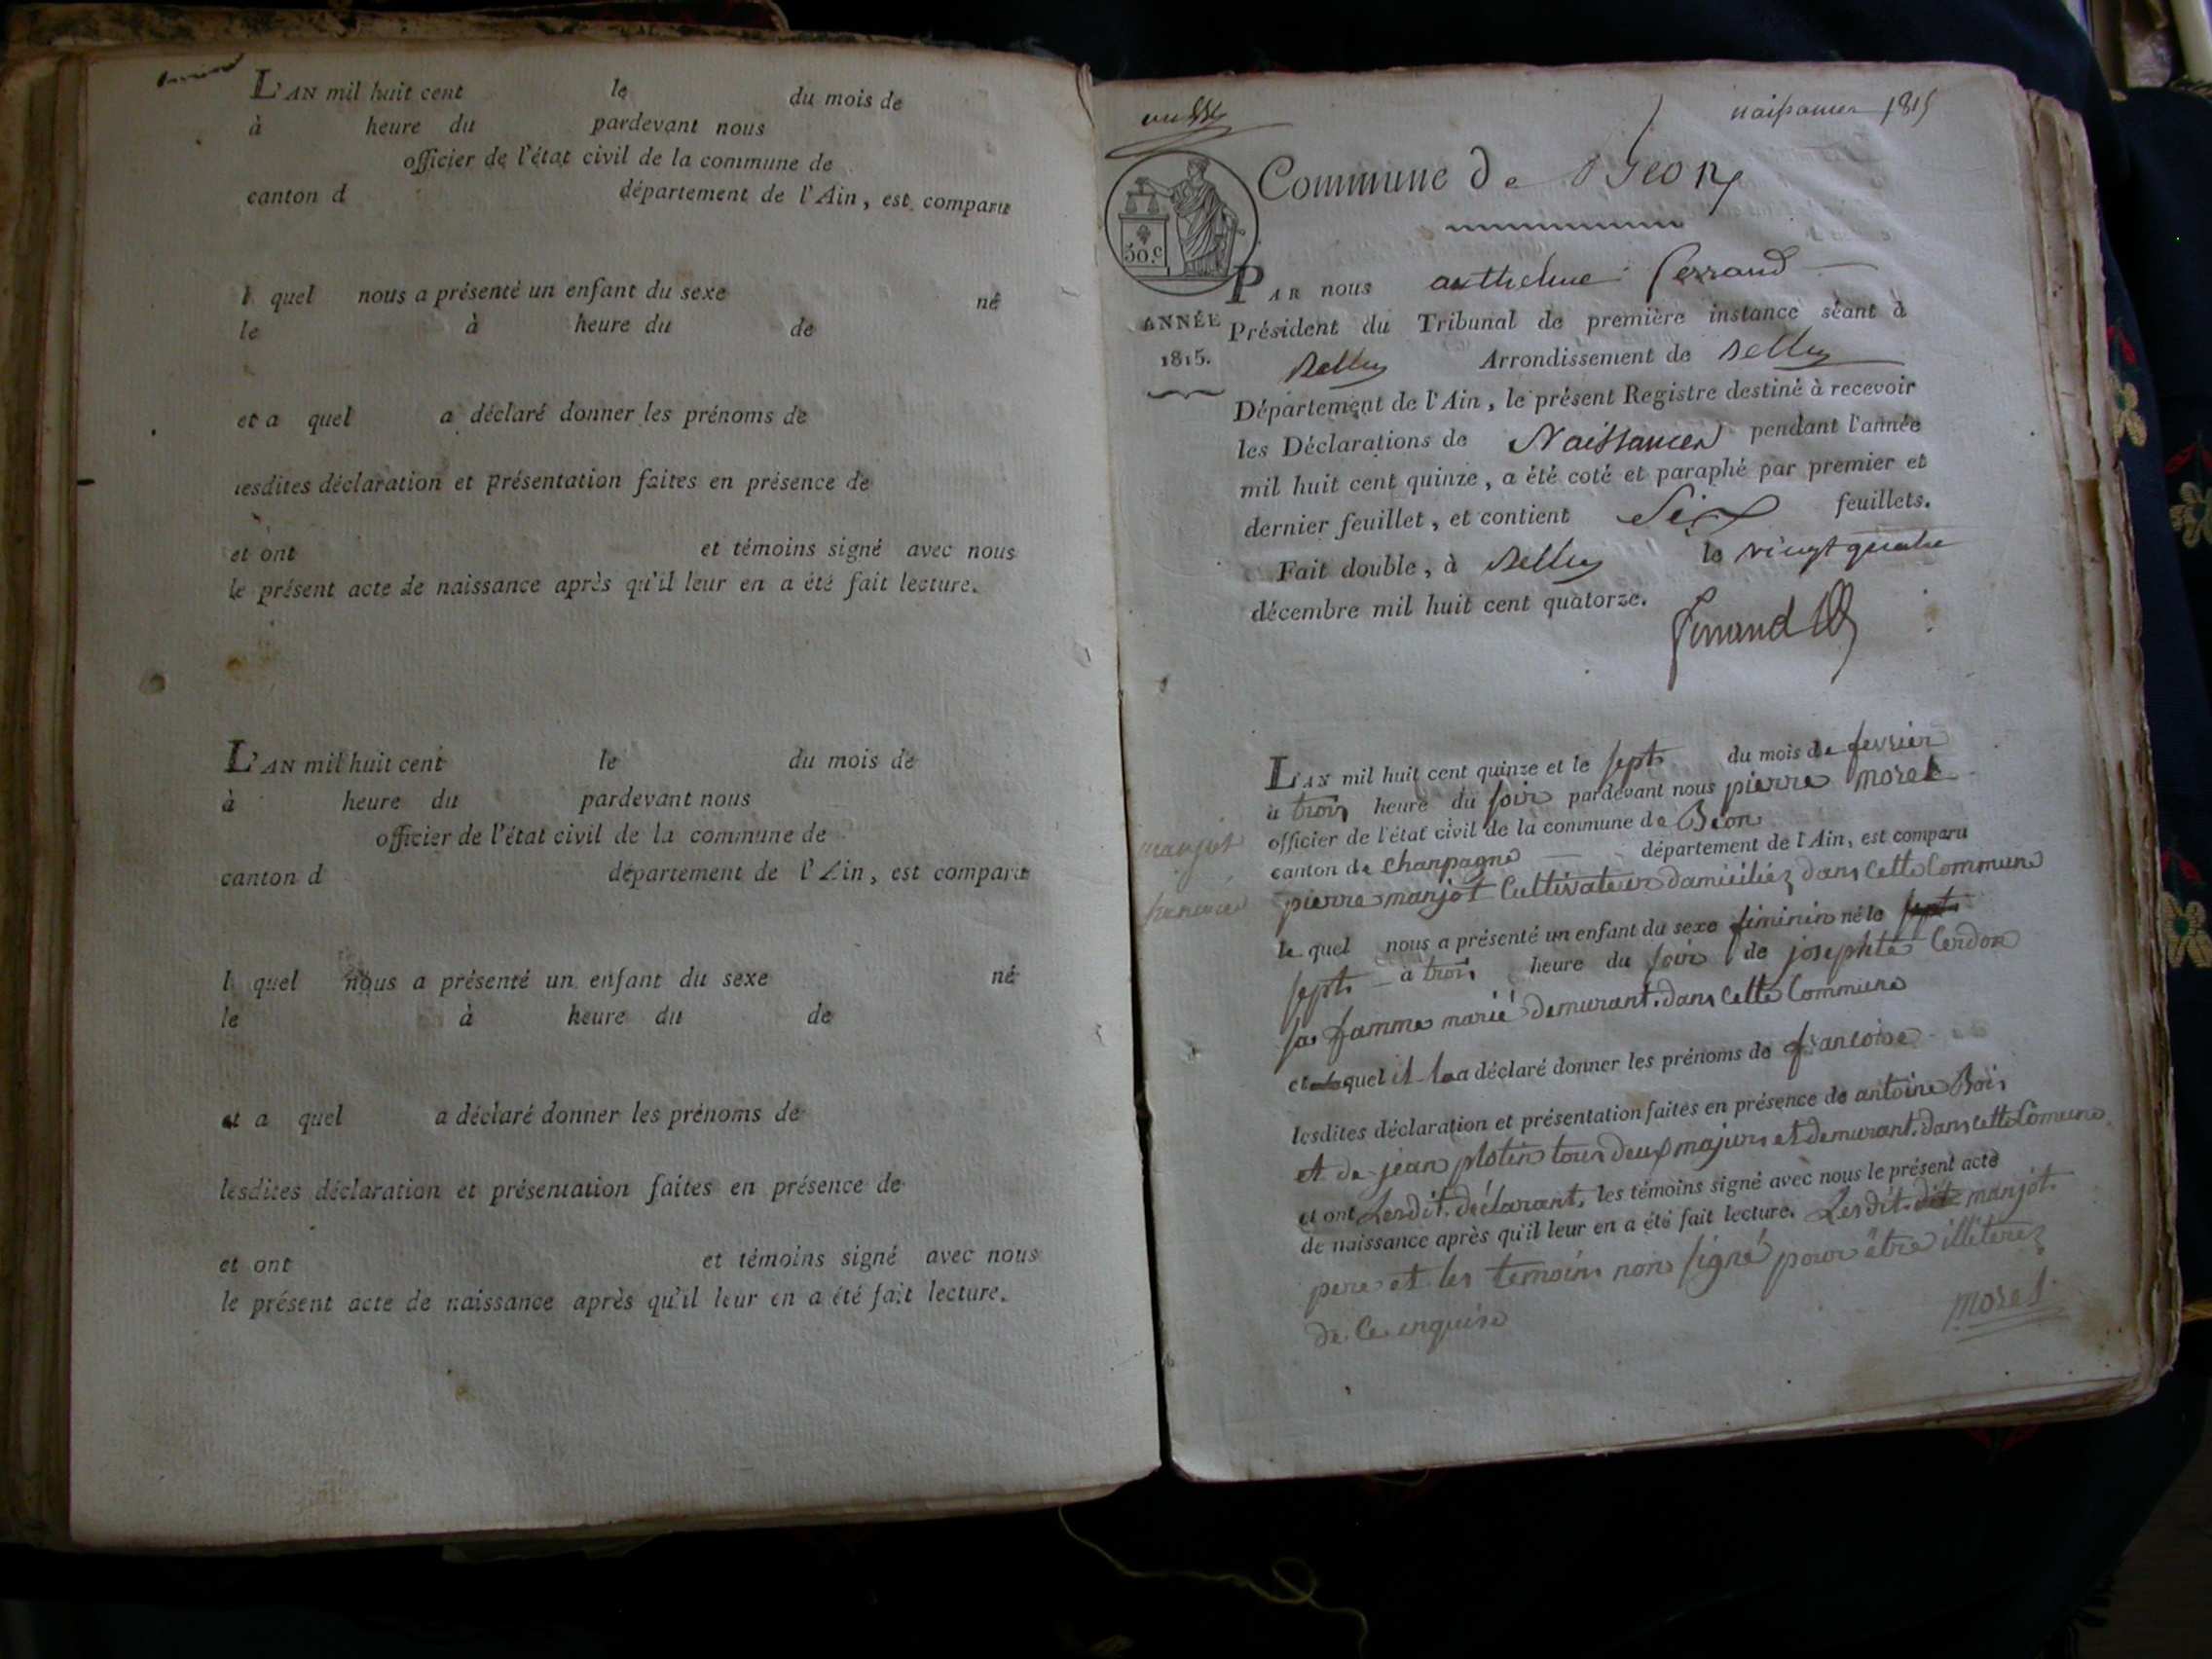 L'AN mil huit cent le du mois de
à heure du pardevant nous
officier de l'état civil de la commune de
canton d département de l'Ain, est comparu
l quel nous a présenté un enfant du sexe né
le à heure du de
et a quel a déclaré donner les prénoms de
lesdites déclaration et présentation faites en présence de
et ont et témoins signé avec nous
le présent acte de naissance après qu'il leur en a été fait lecture.
L'AN mil huit cent le du mois de
à heure du pardevant nous
officier de l'état civil de la commune de
canton d département de l'Ain, est comparu
l quel nous a présenté un enfant du sexe né
le à heure du de
et a quel a déclaré donner les prénoms de
lesdites déclaration et présentation faites en présence de
et ont et témoins signé avec nous
le présent acte de naissance après qu'il leur en a été fait lecture.
naissances 1815
Commune de Béon
50.c
PAR nous anthelme ferrand
ANNÉE
1815.
Président du Tribunal de première instance séant à
Belley Arrondissement de Belley
Département de l'Ain, le présent Registre destiné à recevoir
les Déclarations de Naissances pendant l'année
mil huit cent quinze, a été coté et paraphé par premier et
dernier feuillet, et contient Six feuillets.
Fait double, à Belley le vingt quatre
décembre mil huit cent quatorze.
ferrand
L'AN mil huit cent quinze et le sept du mois de fevrier
à trois heure du soir pardevant nous pierre morel
officier de l'état civil de la commune de Béon
canton de Chanpagne département de l'Ain, est comparu
manjot
pierre manjot Cultivateur damiciliez dans cette Commune
le quel nous a présenté un enfant du sexe feminin né le sept
sept à trois heure du soir de josephte Cerdon
sa famme marié demurant dans cette Commune
et quel il la a déclaré donner les prénoms de francoise
lesdites déclaration et présentation faites en présence de antoine Bois
et de jean plotin tous deux majurs et demurant dans cette Comune
et ont Lesdit déclarant, les témoins signé avec nous le présent acte
de naissance après qu'il leur en a été fait lecture. Lesdit manjot
pere et les temoins nons signé pour être illiterez
de ce enquise
morel